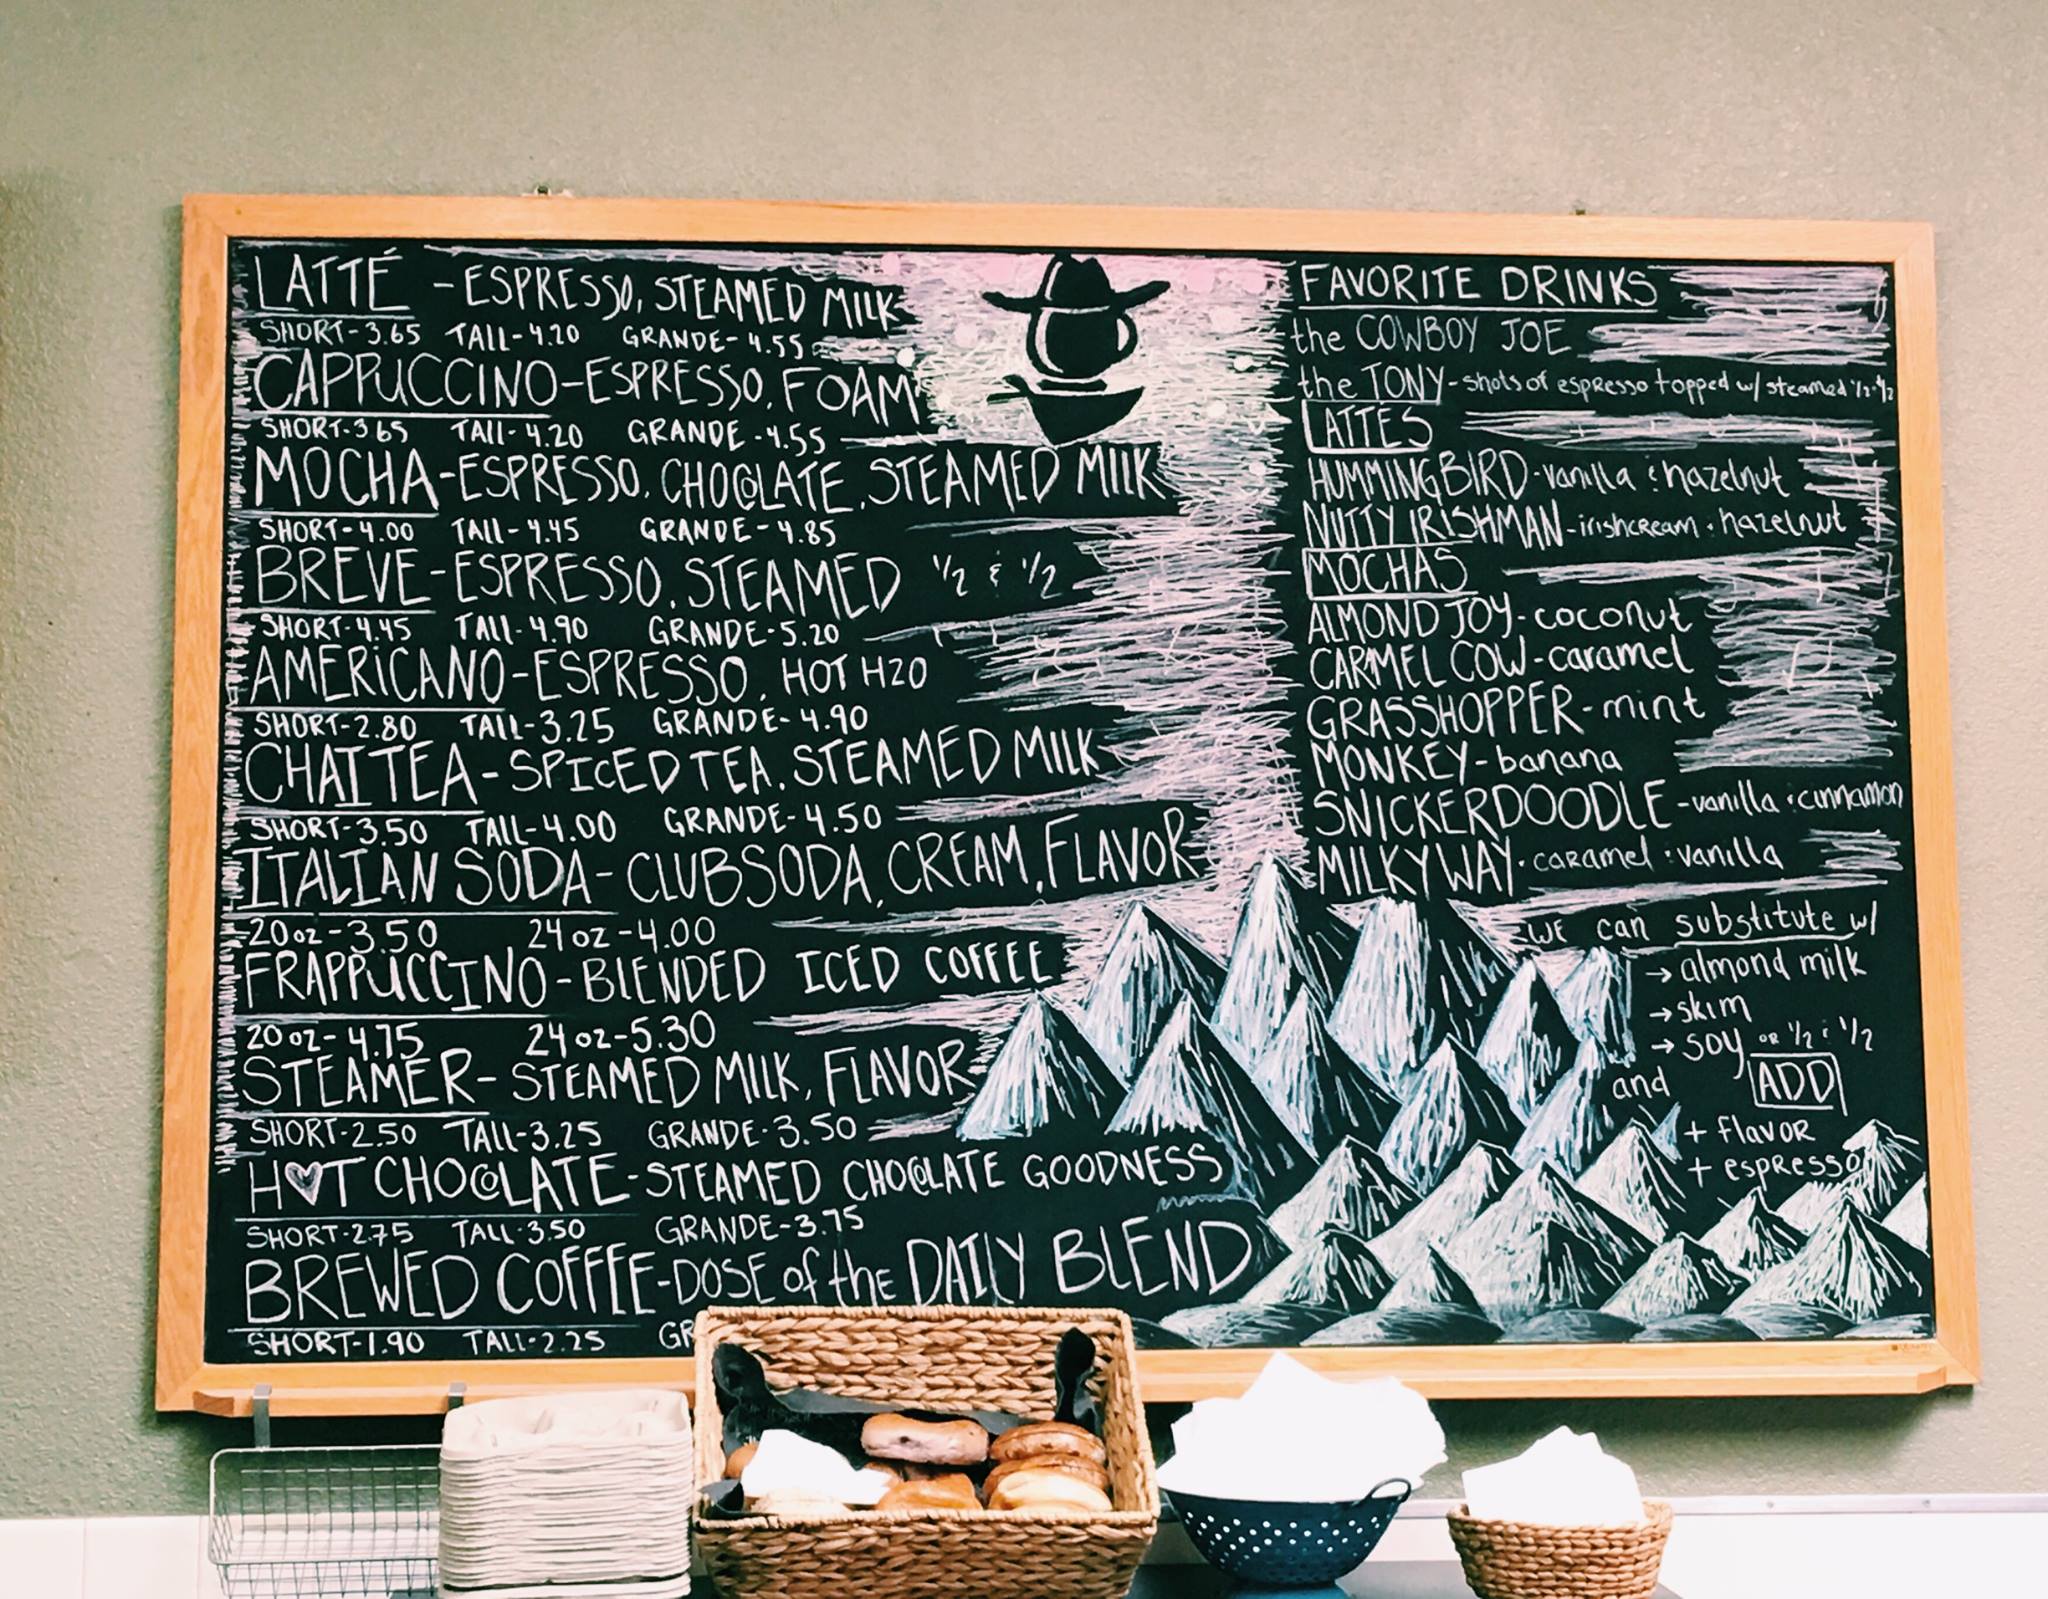 LATTÉ - ESPRESSO, STEAMED MILK
SHORT-3.65 TALL-4.20 GRANDE-4.55
CAPPUCCINO-ESPRESSO, FOAM
SHORT-3.65 TALL-4.20 GRANDE-4.55
MOCHA-ESPRESSO, CHOCOLATE, STEAMED MILK
SHORT-4.00 TALL-4.45 GRANDE-4.85
BREVE-ESPRESSO, STEAMED 1/2 & 1/2
SHORT-4.45 TALL-4.90 GRANDE-5.20
AMERICANO-ESPRESSO, HOT H2O
SHORT-2.80 TALL-3.25 GRANDE-4.90
CHAI TEA-SPICED TEA, STEAMED MILK
SHORT-3.50 TALL-4.00 GRANDE-4.50
ITALIAN SODA-CLUBSODA, CREAM, FLAVOR
20oz-3.50 24oz-4.00
FRAPPUCCINO-BLENDED ICED COFFEE
20oz-4.75 24oz-5.30
STEAMER-STEAMED MILK, FLAVOR
SHORT-2.50 TALL-3.25 GRANDE-3.50
H♥T CHOCOLATE-STEAMED CHOCOLATE GOODNESS
SHORT-2.75 TALL-3.50 GRANDE-3.75
BREWED COFFEE-DOSE of the DAILY BLEND
SHORT-1.90 TALL-2.25
FAVORITE DRINKS
the COWBOY JOE
the TONY-shots of espresso topped w/ steamed 1/2-1/2
LATTES
HUMMINGBIRD-vanilla & hazelnut
NUTTY IRISHMAN-irishcream & hazelnut
MOCHAS
ALMOND JOY-coconut
CARAMEL COW-caramel
GRASSHOPPER-mint
MONKEY-banana
SNICKERDOODLE-vanilla & cinnamon
MILKY WAY-caramel & vanilla
WE can substitute w/
→ almond milk
→ skim
→ soy OR 1/2 & 1/2
and ADD
+ flavor
+ espresso